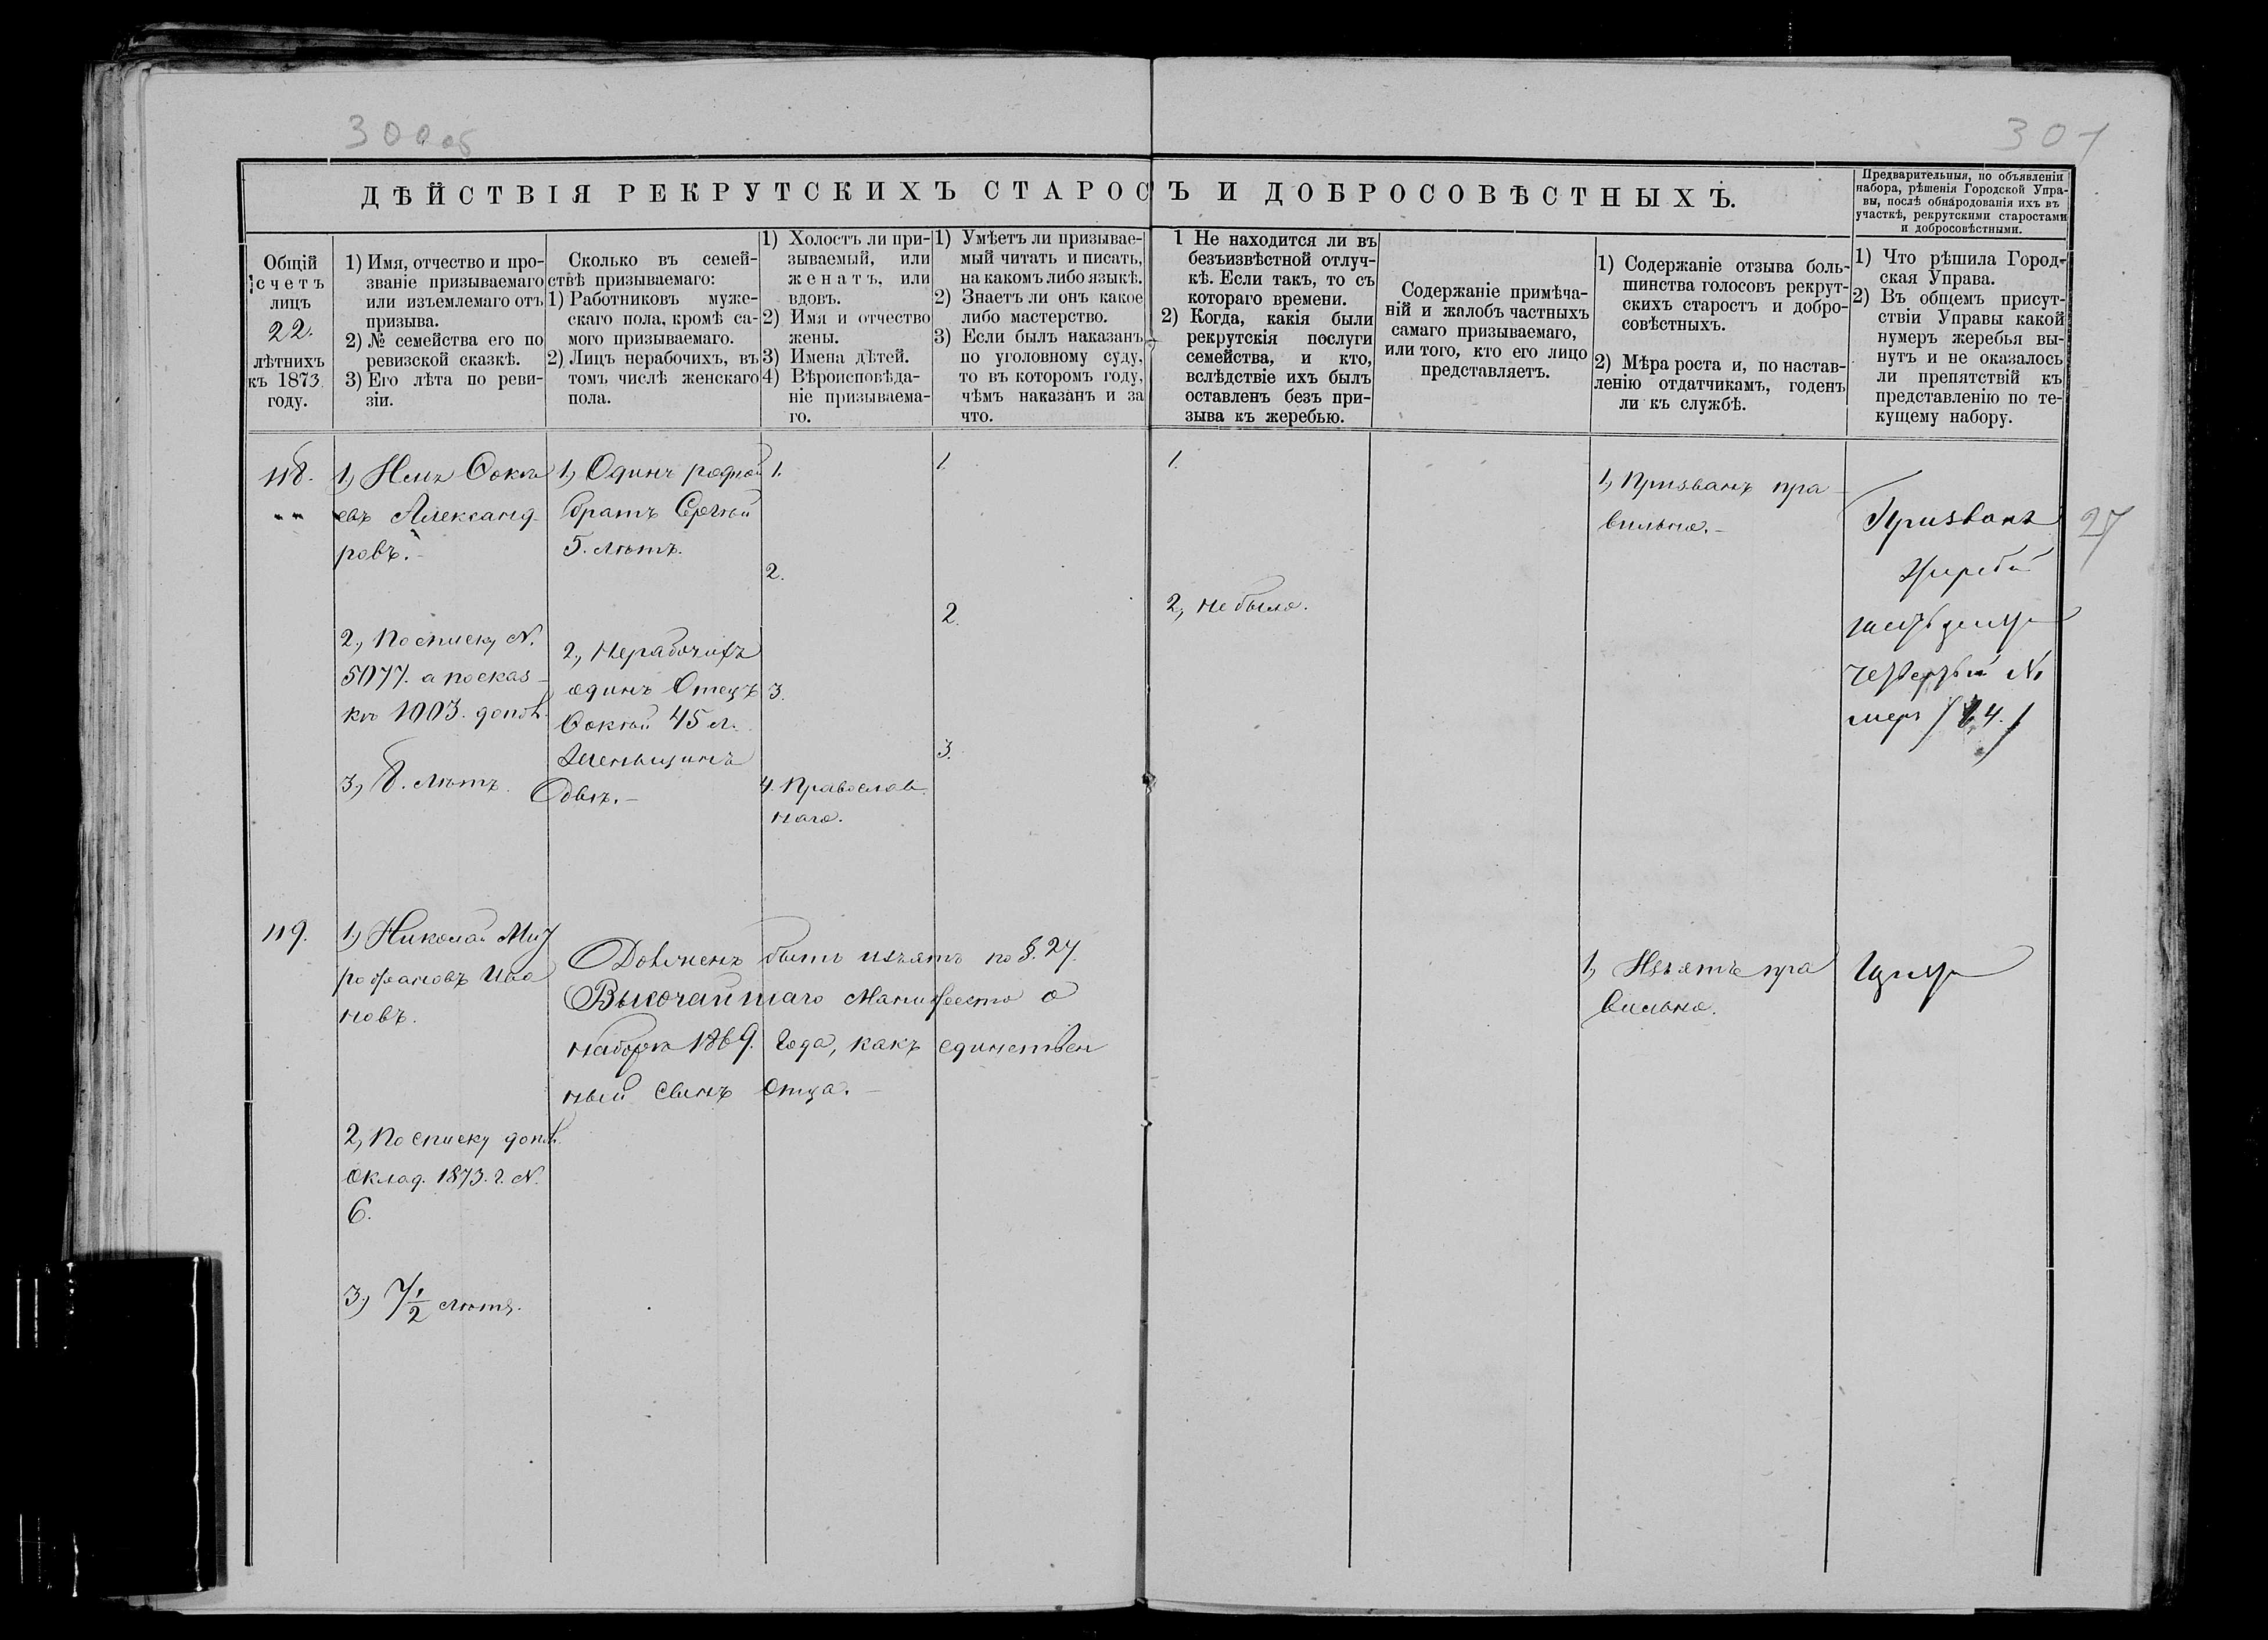 300 об
301
ДѢЙСТВІЯ РЕКРУТСКИХЪ СТАРОСЪ И ДОБРОСОВѢСТНЫХЪ.
Предварительныя, по объявленіи
набора, рѣшенія Городской Упра-
вы, послѣ обнародованія ихъ въ
участкѣ, рекрутскими старостами
и добросовѣстными.
Общій
счетъ
лицъ
22.
лѣтнихъ
къ 1873
году.
1) Имя, отчество и про-
званіе призываемаго
или изъемлемаго отъ
призыва.
2) № семейства его по
ревизской сказкѣ.
3) Его лѣта по реви-
зіи.
Сколько въ семей-
ствѣ призываемаго:
1) Работниковъ муже-
скаго пола, кромѣ са-
мого призываемаго.
2) Лицъ нерабочихъ, въ
томъ числѣ женскаго
пола.
1) Холостъ ли при-
зываемый, или
женатъ, или
вдовъ.
2) Имя и отчество
жены.
3) Имена дѣтей.
4) Вѣроисповѣда-
ніе призываема-
го.
1) Умѣетъ ли призывае-
мый читать и писать,
на какомъ либо языкѣ.
2) Знаетъ ли онъ какое
либо мастерство.
3) Если былъ наказанъ
по уголовному суду,
то въ которомъ году,
чѣмъ наказанъ и за
что.
1 Не находится ли въ
безъизвѣстной отлуч-
кѣ. Если такъ, то съ
котораго времени.
2) Когда, какія были
рекрутскія послуги
семейства, и кто,
вслѣдствіе ихъ былъ
оставленъ безъ при-
зыва къ жеребью.
Содержаніе примѣча-
ній и жалобъ частныхъ
самаго призываемаго,
или того, кто его лицо
представляетъ.
1) Содержаніе отзыва боль-
шинства голосовъ рекрут-
скихъ старостъ и добро-
совѣстныхъ.
2) Мѣра роста и, по настав-
ленію отдатчикамъ, годенъ
ли къ службѣ.
1) Что рѣшила Город-
ская Управа.
2) Въ общемъ присут-
ствіи Управы какой
нумеръ жеребья вы-
нутъ и не оказалось
ли препятствій къ
представленію по те-
кущему набору.
118.
1) Фокѣ
евъ Александ-
ровъ.-
2, По списку N.
5077. а по сказ-
кѣ 1003. допол.
3, 8. лѣтъ.
1, Одинъ родной
братъ Сергѣй
5. лѣтъ.
2, Нерабочихъ
одинъ Отецъ
Фокѣй 45 л.
Женьщинъ
двѣ.-
1.
2.
3.
4. Православ-
наго.
1.
2.
3.
1.
2, не было.
1, Призванъ пра-
вильно.-
Призванъ
Жребій
шестьдесят
четвертый Nо
меръ /64./
27
119.
1, Николай Мит
рофановъ Ива
новъ.
2, По списку допол.
оклад. 1873. г. N.
6.
3, 7 1/2 лѣтъ.
Долженъ быть изъятъ по §. 27.
Высочайшаго Манифеста о
наборѣ 1869. Года, какъ единствен
ный сынъ Отца.-
1, Изъятъ пра
вильно.